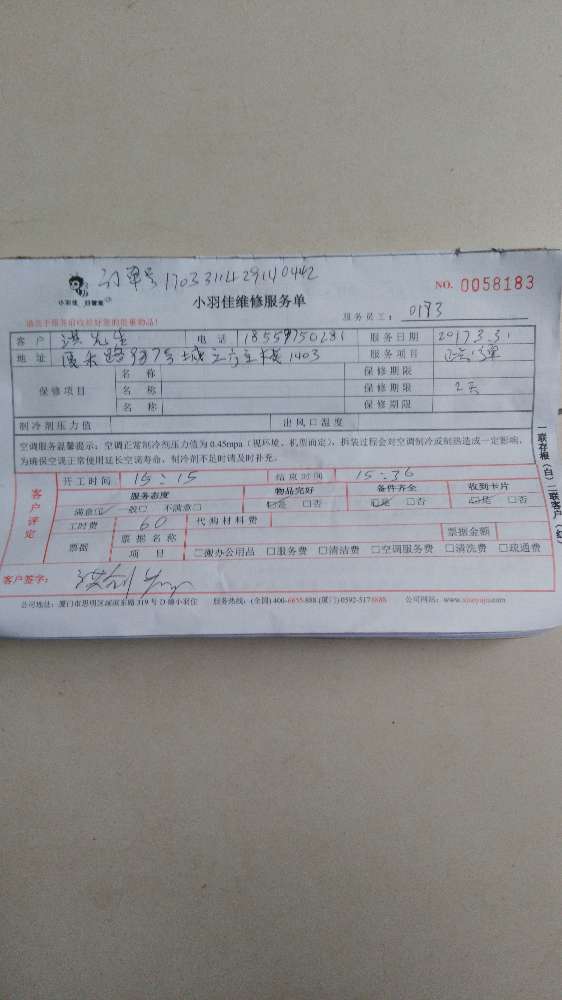 订单号1703311429140442
小羽佳 好管家
小羽佳维修服务单
NO. 0058183
服务员工： 0183
客 户 洪先生 电 话 服务日期 2017.3.31
地 址 服务项目
保修项目 名 称 保修期限
名 称 保修期限 2天
名 称 保修期限
制冷剂压力值 出风口温度
空调服务温馨提示：空调正常制冷剂压力值为0.45mpa（视环境、机型而定），拆装过程会对空调制冷或制热造成一定影响，
为确保空调正常使用延长空调寿命，制冷剂不足时请及时补充。
客户评定
开工时间 15:15 结束时间 15:36
服务态度 物品完好 备件齐全 收到卡片
满意☑ 一般□ 不满意□ ☑是 □否 ☑是 □否 ☑是 □否
工时费 60 代购材料费
票据 票据名称 票据金额
项 目 □搬办公用品 □服务费 □清洁费 □空调服务费 □清洗费 □疏通费
一联存根（白）二联客户（红）
客户签字：
服务热线：(全国)400-6655-888 (厦门)0592-5178888 公司网站：www.xiaoyujia.com